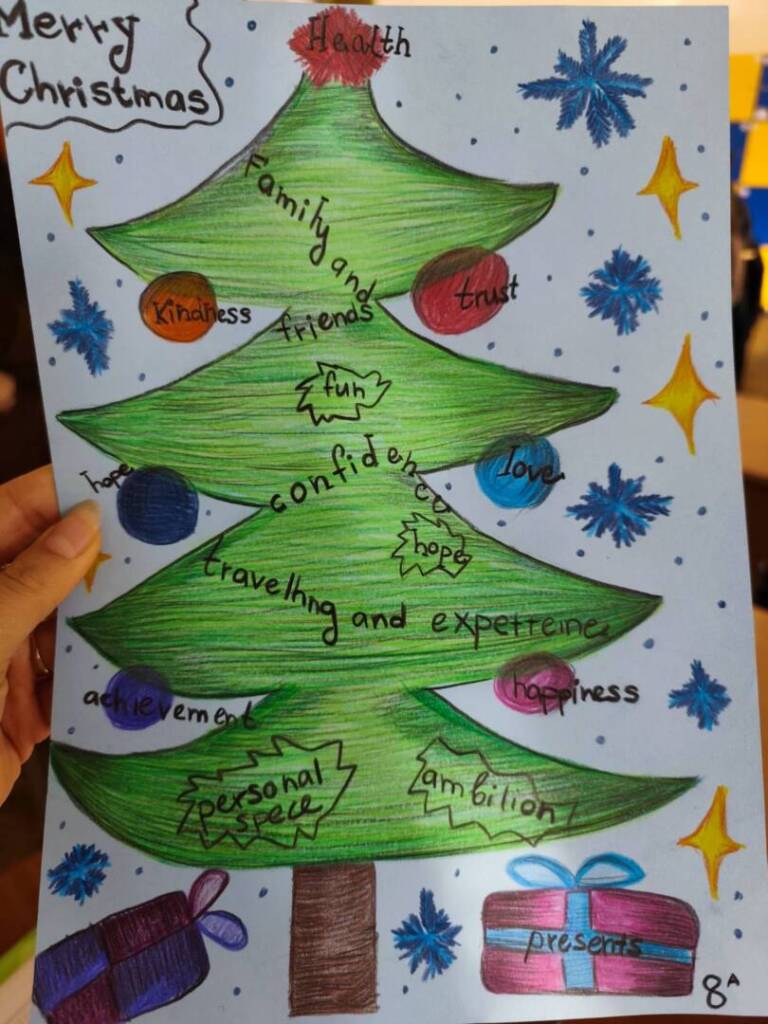 Merry
Christmas
Health
Family and
friends
kindness
trust
fun
confidence
hope
love
hope
travelling and expetteine
achievement
happiness
personal
spece
ambilion
presents
8A